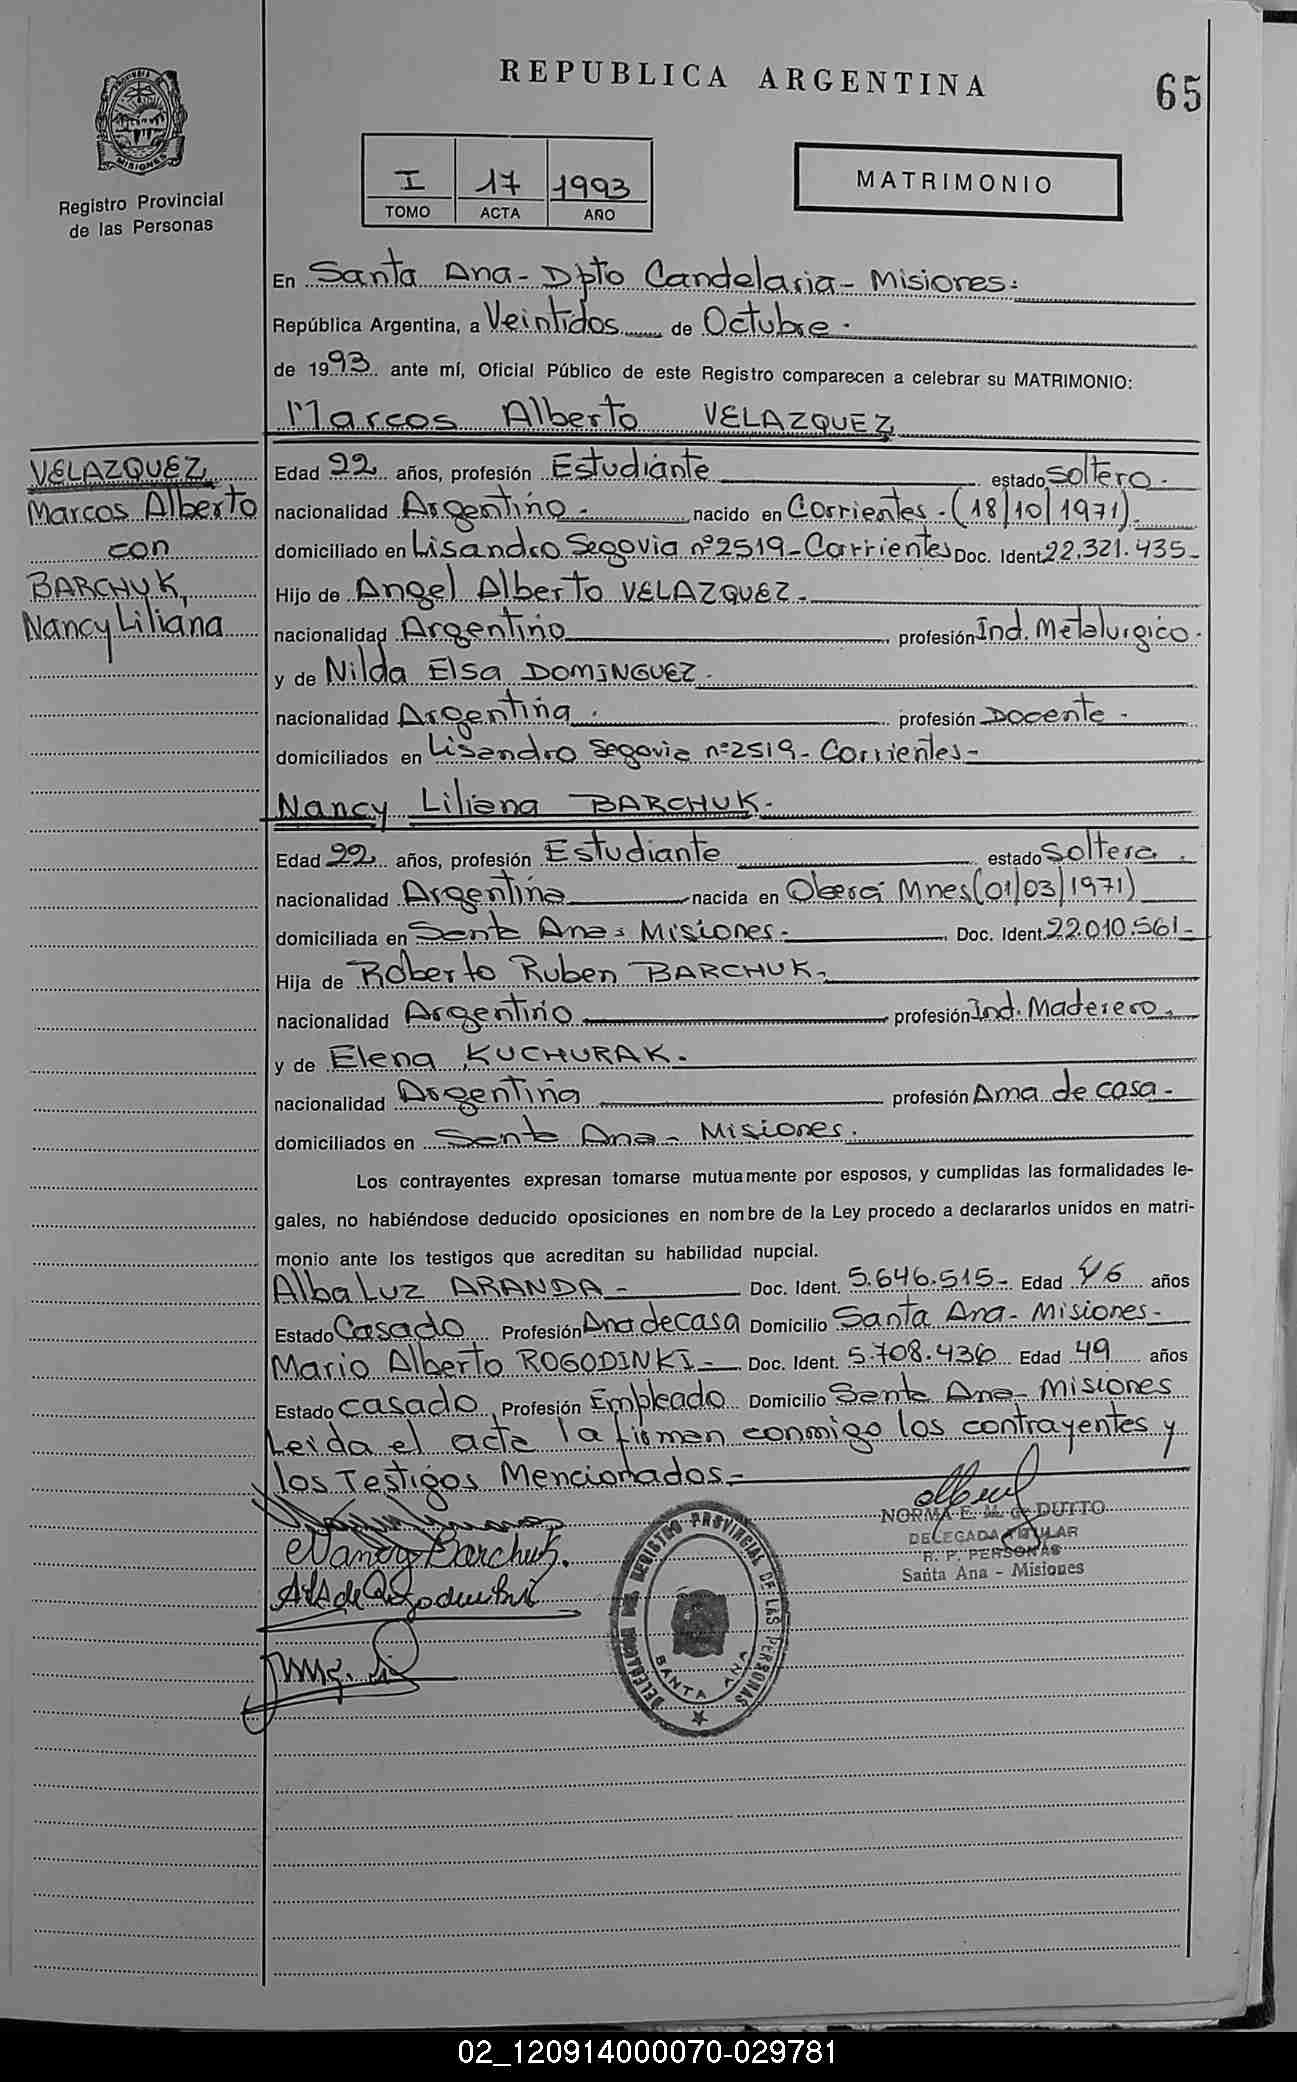 REPUBLICA ARGENTINA
65
MISIONES
Registro Provincial
de las Personas
I 17 1993
TOMO ACTA AÑO
MATRIMONIO
En Santa Ana - Dpto Candelaria - Misiones.
República Argentina, a Veintidos de Octubre.
de 1993 ante mí, Oficial Público de este Registro comparecen a celebrar su MATRIMONIO:
Marcos Alberto VELAZQUEZ
VELAZQUEZ
Marcos Alberto
con
BARCHUK,
Nancy Liliana
Edad 22 años, profesión Estudiante estado Soltero.
nacionalidad Argentino. nacido en Corrientes. (18/10/1971).
domiciliado en Lisandro Segovia nº 2519 - Corrientes Doc. Ident. 22.321.435-
Hijo de Angel Alberto VELAZQUEZ.
nacionalidad Argentino profesión Ind. Metalurgico.
y de Nilda Elsa DOMINGUEZ.
nacionalidad Argentina. profesión Docente.
domiciliados en Lisandro Segovia nº 2519 - Corrientes -
Nancy Liliana BARCHUK.
Edad 22 años, profesión Estudiante estado Soltera.
nacionalidad Argentina nacida en Oberá Mnes (01/03/1971)
domiciliada en Santa Ana - Misiones - Doc. Ident. 22.010.561-
Hija de Roberto Ruben BARCHUK.
nacionalidad Argentino profesión Ind. Maderero.
y de Elena KUCHURAK.
nacionalidad Argentina profesión Ama de casa -
domiciliados en Santa Ana - Misiones.
Los contrayentes expresan tomarse mutuamente por esposos, y cumplidas las formalidades le-
gales, no habiéndose deducido oposiciones en nombre de la Ley procedo a declararlos unidos en matri-
monio ante los testigos que acreditan su habilidad nupcial.
Alba Luz ARANDA - Doc. Ident. 5.646.515- Edad 46 años
Estado Casado Profesión Ama de casa Domicilio Santa Ana - Misiones -
Mario Alberto ROGODINKI - Doc. Ident. 5.708.436 Edad 49 años
Estado casado Profesión Empleado Domicilio Santa Ana - Misiones
Leida el acta la firman conmigo los contrayentes y
los Testigos Mencionados -
NORMA E. M. de DUTTO
DELEGADA TITULAR
R. P. PERSONAS
Santa Ana - Misiones
Nancy Barchuk.
DELEGACION DEL REGISTRO PROVINCIAL DE LAS PERSONAS
SANTA ANA
02_120914000070-029781